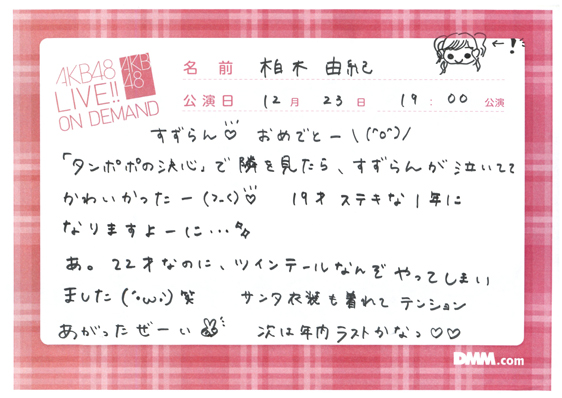 AKB48
LIVE!!
ON DEMAND
AKB
48
名 前 柏木 由紀 ←!
公演日 12月 23日 19:00 公演
すずらん♡ おめでとー\(^o^)/
「タンポポの決心」で隣を見たら、すずらんが泣いてて
かわいかったー(>_<)♡ 19才ステキな1年に
なりますよーに…✨
あ。22才なのに、ツインテールなんぞやってしまい
ました(´・ω・)笑 サンタ衣装も着れてテンション
あがったぜーい✌ 次は年内ラストかなっ♡♡
DMM.com